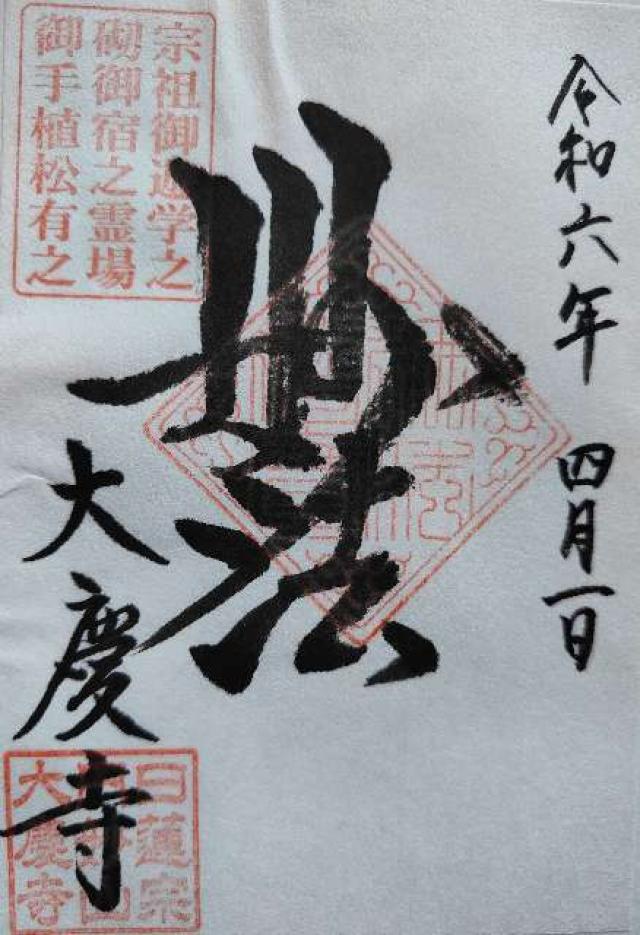 令和六年 四月一日
宗祖御遊学之
砌御宿之霊場
御手植松有之
妙法
大慶寺
日蓮宗
大慶寺